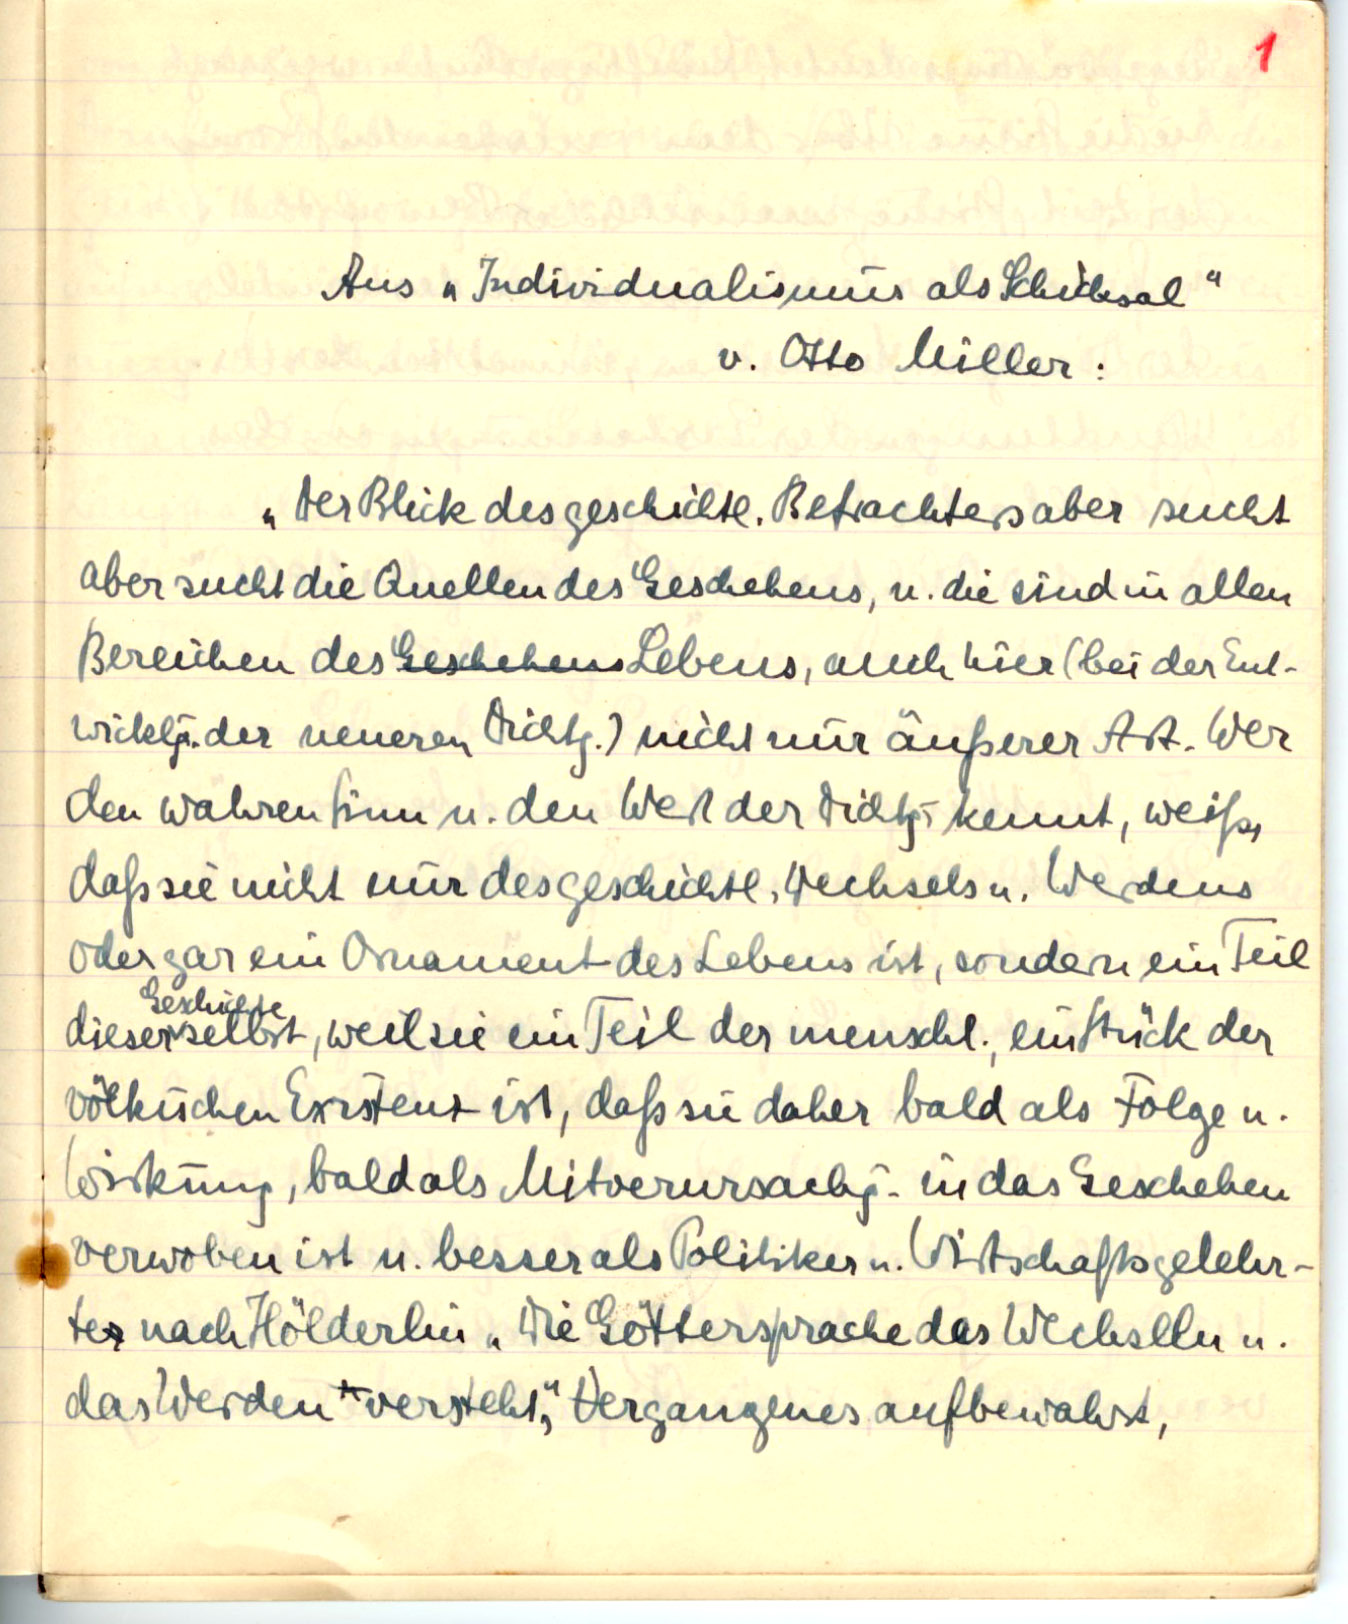 1
Aus „Individualismus als Schicksal"
v. Otto Miller:
„Der Blick des geschichtl. Betrachters aber sucht
aber sucht die Quellen des Geschehens, u. die sind in allen
Bereichen des Geschehens Lebens, auch hier (bei der Ent-
wicklg. der neueren Dichtg.) nicht nur äußerer Art. Wer
den wahren Sinn u. den Wert der Dichtg. kennt, weiß,
daß sie nicht nur des geschichtl. Wechsels u. Werdens
oder gar ein Ornament des Lebens ist, sondern ein Teil
Geschichte
dieser selbst, weil sie ein Teil der menschl., ein Stück der
völkischen Existenz ist, daß sie daher bald als Folge u.
Wirkung, bald als Mitverursachg. in das Geschehen
verwoben ist u. besser als Politiker u. Wirtschaftsgelehr-
ter nach Hölderlin „Die Göttersprache das Wechselln u.
das Werden versteht", Vergangenes aufbewahrt,